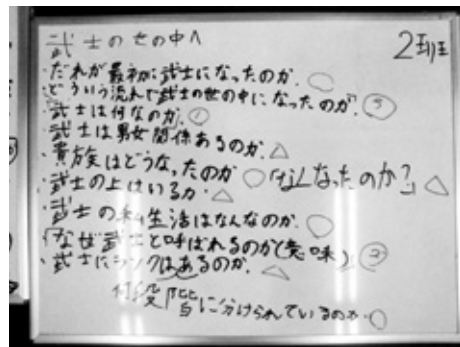 武士の世の中へ 2班
・だれが最初に武士になったのか. ○
・どういう流れで武士の世の中になったのか. ③
・武士は何なのか. ①
・武士は男女関係あるのか. △
・貴族はどうなったのか ○ 「なくなったのか?」 △
・武士の上はいるか. △
・武士の私生活はなんなのか. ○
・「なぜ武士と呼ばれるのか(意味)」 ②
・武士にランクはあるのか. △
何段階に分けられているのか. ○